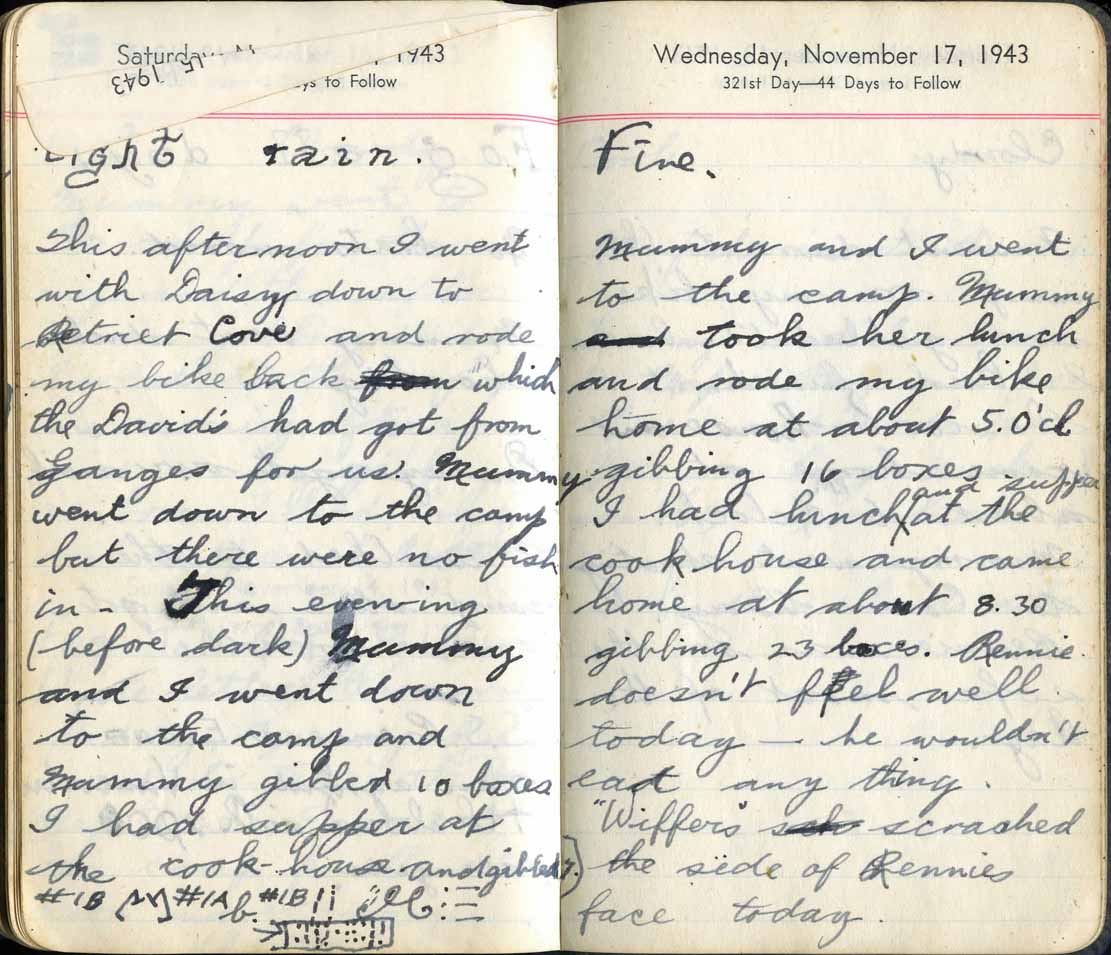 Saturday
, 1943
15, 1943
ys to Follow
Light rain.
This afternoon I went
with Daisy down to
Retriet Cove and rode
my bike back from "which
the David's had got from
Ganges for us". Mummy
went down to the camp
but there were no fish
in - This evening
(before dark) Mummy
and I went down
to the camp and
Mummy gibled 10 boxes
I had supper at
the cook-house and gibled 7.
#1B #1A b. #1B
Wednesday, November 17, 1943
321st Day—44 Days to Follow
Fine.
Mummy and I went
to the camp. Mummy
and took her lunch
and rode my bike
home at about 5.0'cl
gibbing 16 boxes
I had lunch and supper at the
cook house and came
home at about 8.30
gibbing 23 boxes. Rennie
doesn't feel well
today — he wouldn't
eat any thing.
"Wiffers" sch scrached
the side of Rennies
face today.